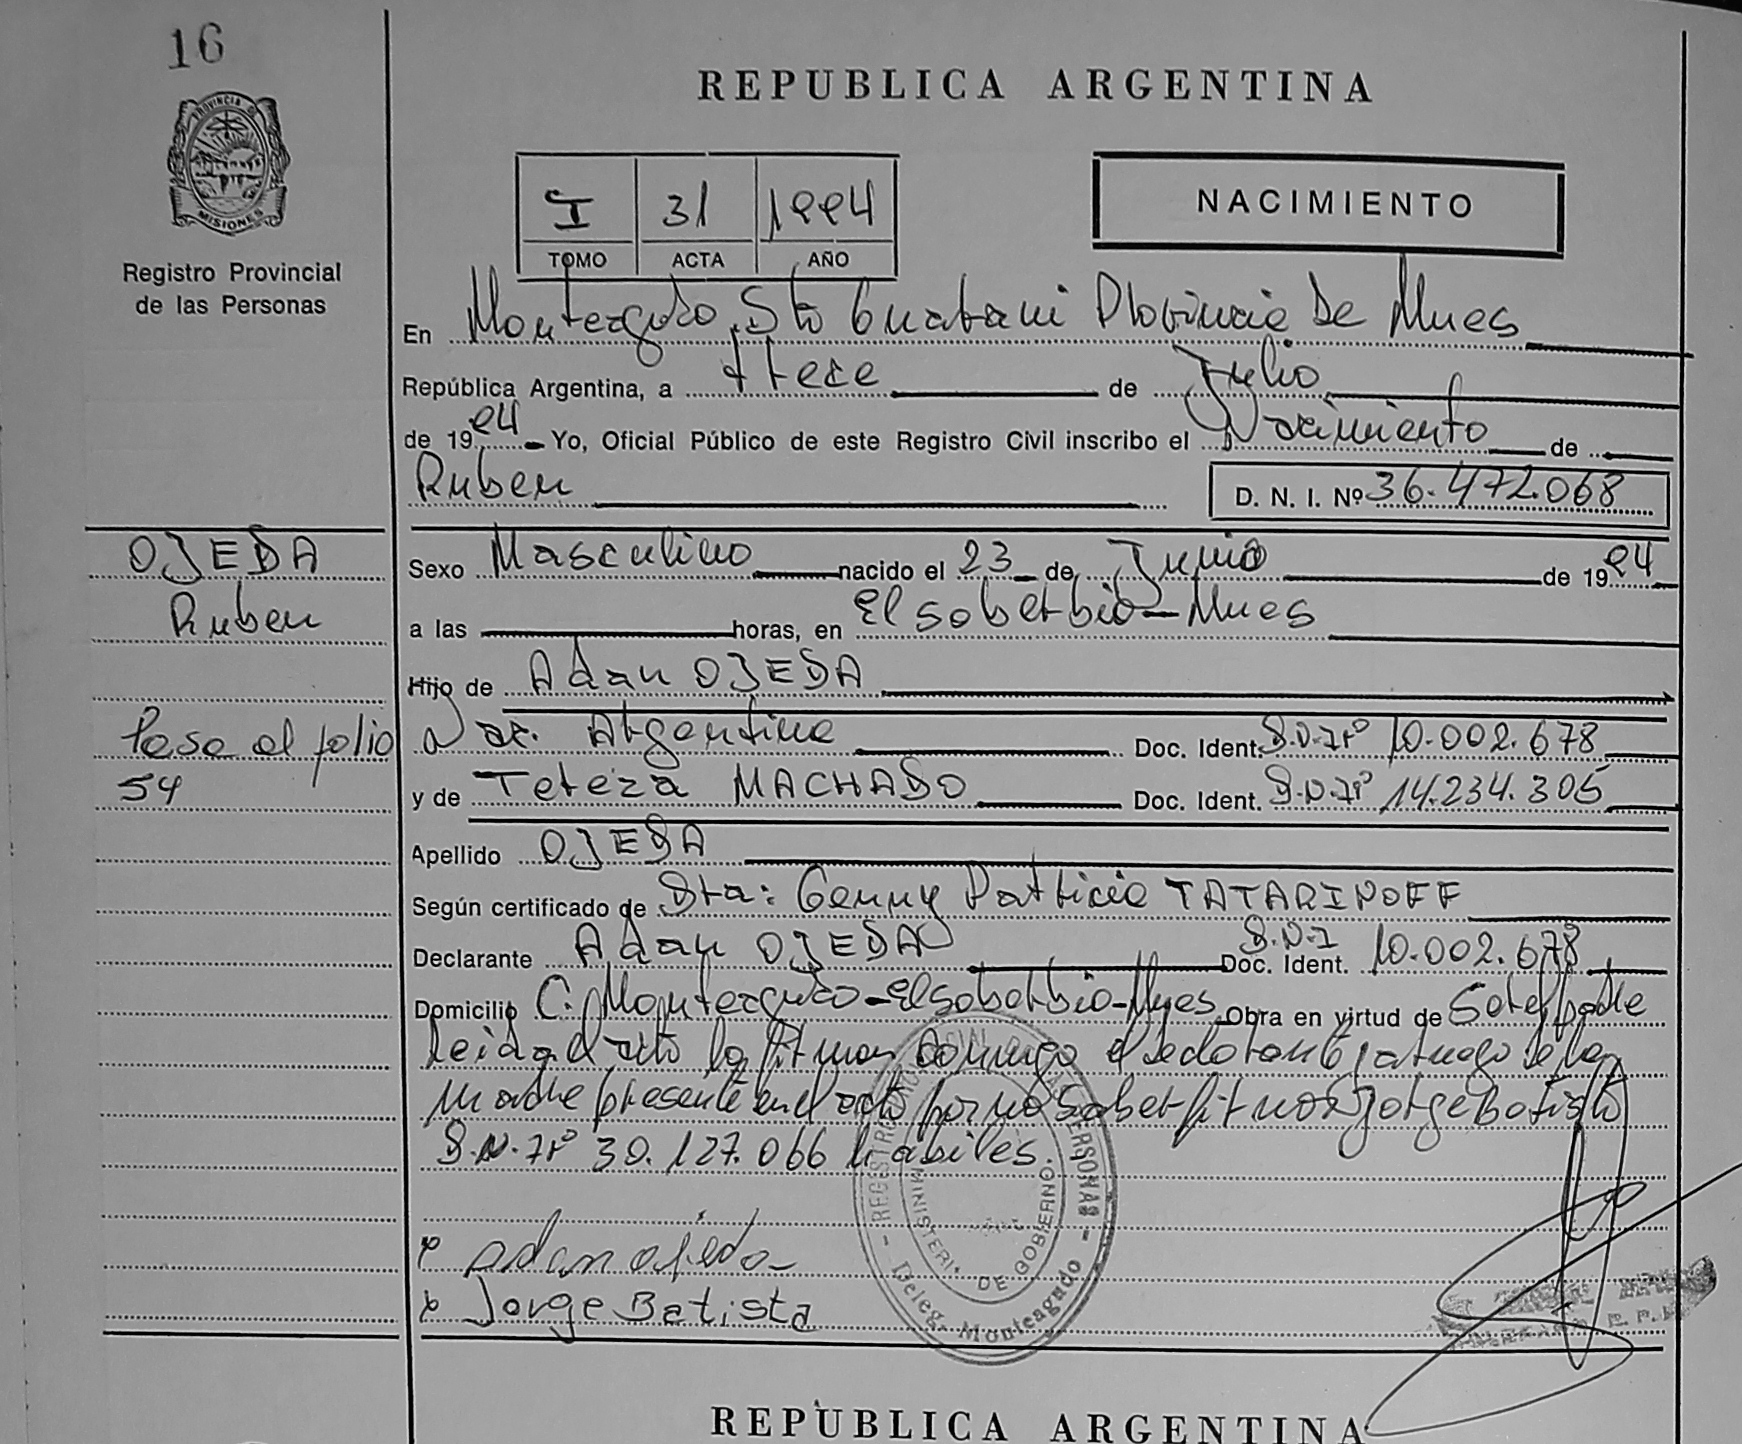 16
REPUBLICA ARGENTINA
PROVINCIA DE
MISIONES
Registro Provincial
de las Personas
I 31 1994
TOMO ACTA AÑO
NACIMIENTO
En Monteagudo, Dto Guarani Provincia De Mnes
República Argentina, a trece de Julio
de 1994 Yo, Oficial Público de este Registro Civil inscribo el Nacimiento de
Ruben D. N. I. Nº 36.472.068
OJEDA
Ruben
Pasa al folio
54
Sexo Masculino nacido el 23 de Junio de 1994
a las horas, en El soberbio-Mnes
Hijo de Adan OJEDA
Nac. Argentina Doc. Ident. D.N.Iº 10.002.678
y de Tereza MACHADO Doc. Ident. D.N.Iº 14.234.305
Apellido OJEDA
Según certificado de Dra: Genny Patricia TATARINOFF
Declarante Adan OJEDA Doc. Ident. D.N.I 10.002.678
Domicilio C. Monteagudo-El soberbio-Mnes Obra en virtud de Ser el padre
leida el acto la firman conmigo el declarante, a ruego de la
madre presente en el acto por no saber firmar Jorge Batista
D.N.Iº 30.127.066 habiles.
x adan ojeda
x Jorge Batista
REGISTRO PERSONAS
MINISTERI. DE GOBIERNO
Deleg. Monteagudo
REPUBLICA ARGENTINA